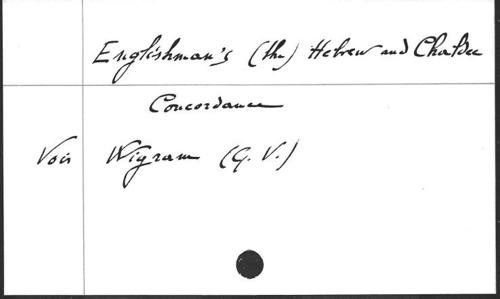 Englishman's (the) Hebrew and Chaldee
Concordance
Voir Wigram (G. V.)